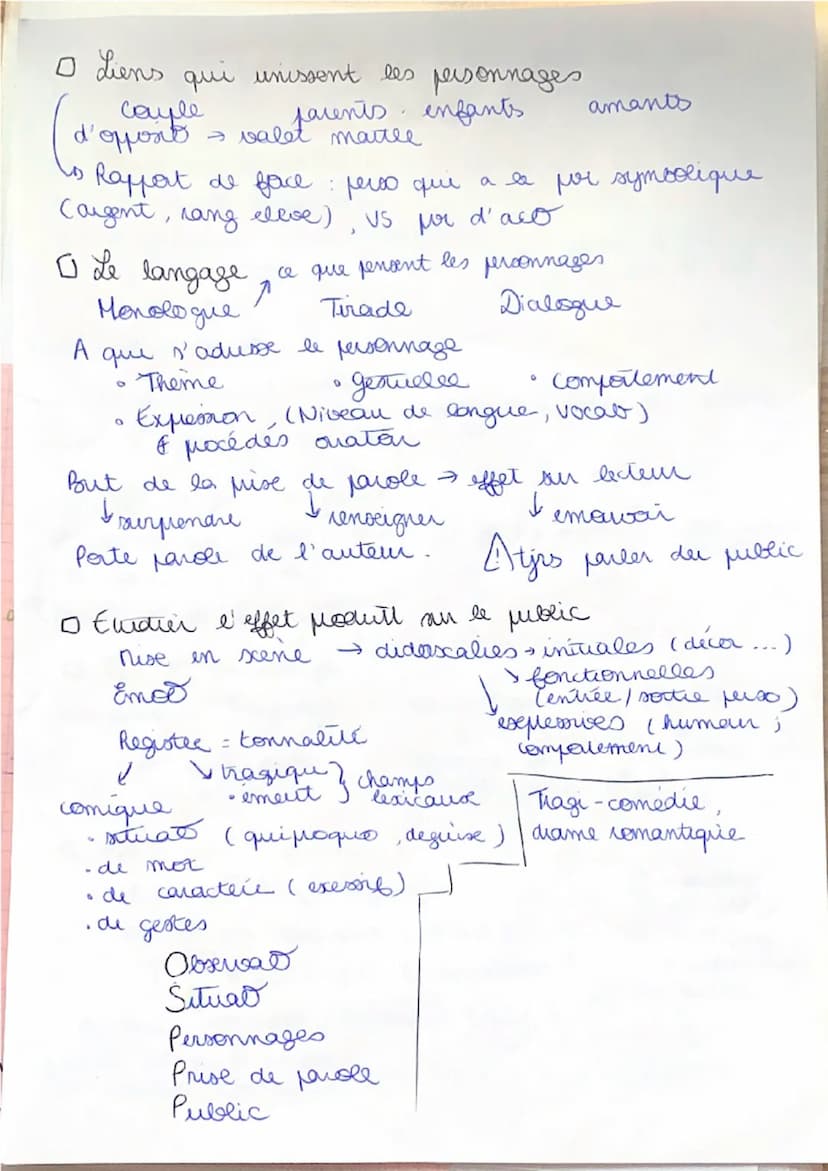 □ Liens qui unissent les personnages
couple parents-enfants amants
d'opposit° → valet maitre
↳ Rapport de force : perso qui a le pvr symbolique
(argent, rang elevé), vs pvr d'act°
□ Le langage ce que pensent les personnages
Monologue ↗ Tirade Dialogue
A qui s'adresse le personnage
• Thème • gestuelle • comportement
• Expression, (Niveau de langue, vocab)
& procédés oratoir
But de la prise de parole → effet sur lecteur
↓ surprendre ↓ renseigner ↓ emouvoir
Porte parole de l'auteur. ⚠ tjrs parler du public
□ Etudier l'effet produit sur le public
Mise en scène → didascalies → initiales (décor ...)
↘ fonctionnelles
Emot° (entrée / sortie perso)
↘ expressives (humeur ;
Registre = tonnalité comportement)
↙ ↘ tragique } champs
comique • émeut } lexicaux
Tragi-comédie,
• situat° (quiproquo, deguise) drame romantique
• de mot
• de caractère (excessif)
• de gestes
Observat°
Situat°
Personnages
Prise de parole
Public